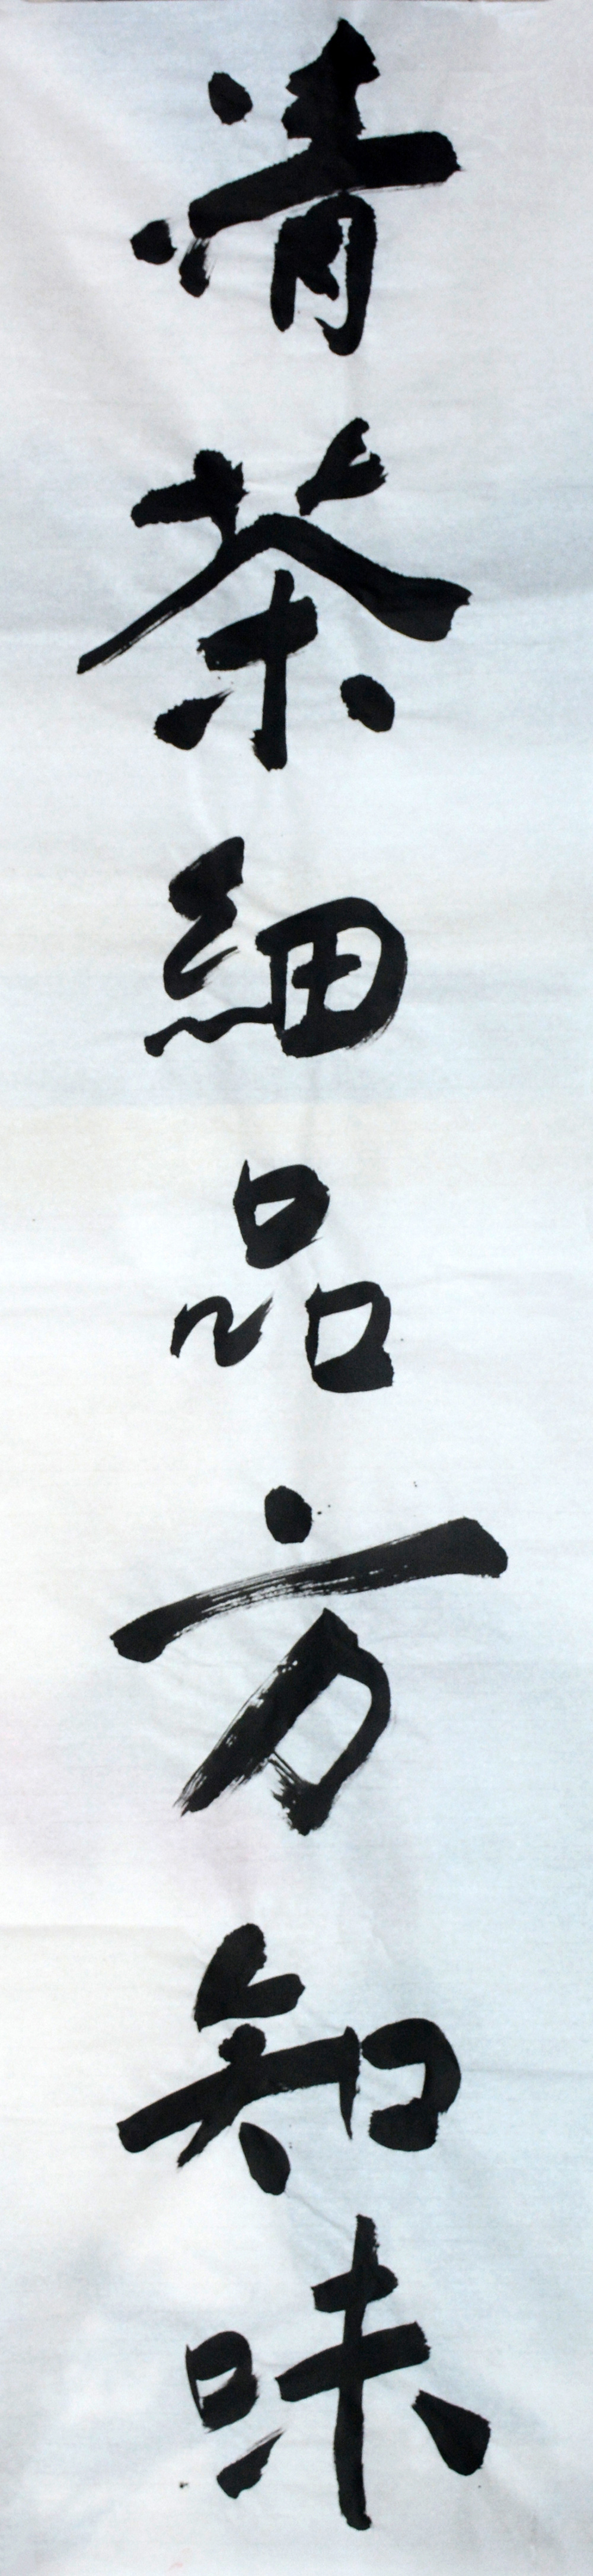 清茶細品方知味